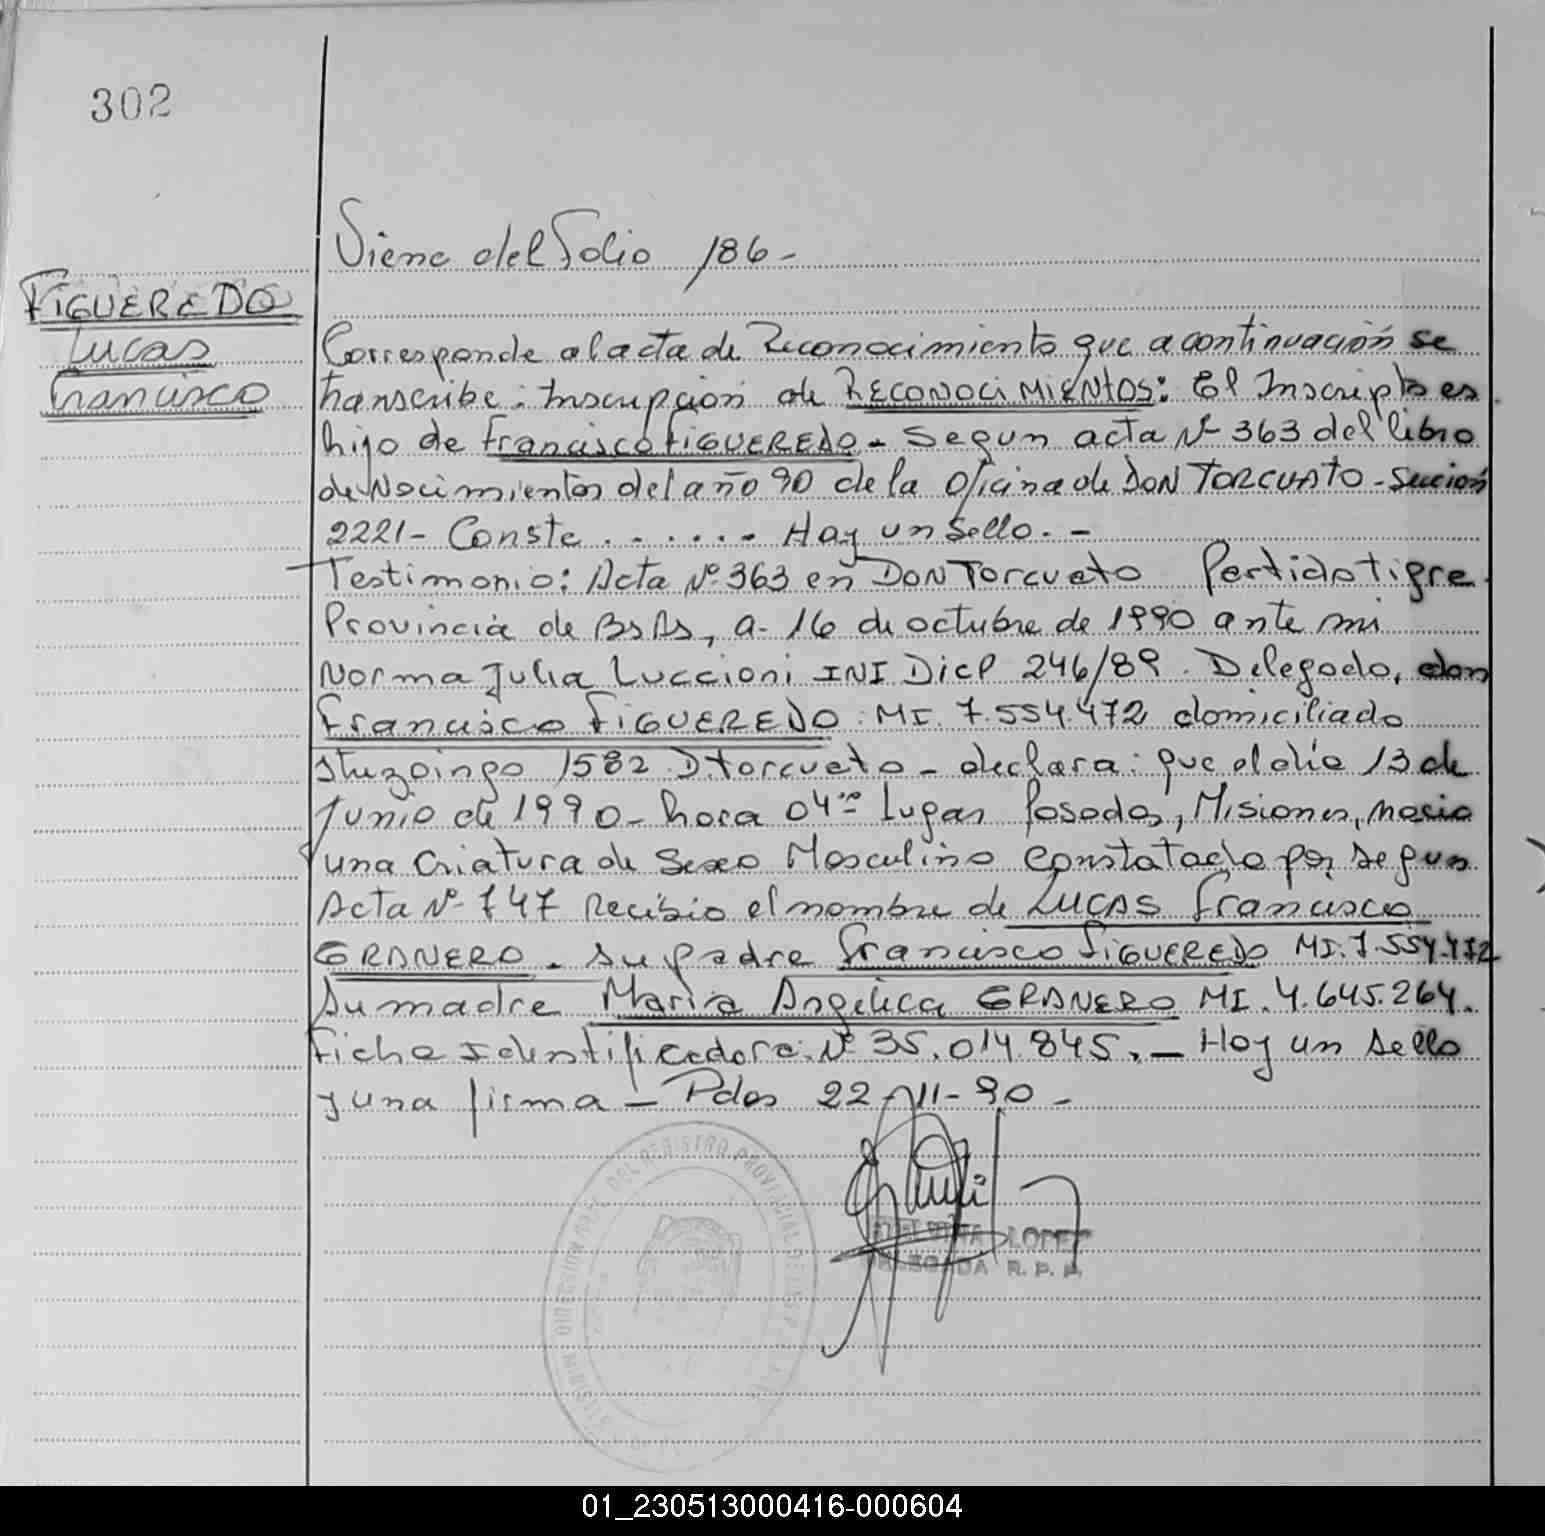 302
Viene del Folio 186-
FIGUEREDO
Lucas
Francisco
Corresponde al acta de Reconocimiento que a continuación se
transcribe: Inscripción de RECONOCIMIENTOS: El Inscripto es
hijo de Francisco FIGUEREDO - Segun acta Nº 363 del libro
de Nacimientos del año 90 de la Oficina de DON TORCUATO - Sección
2221- Conste . . . . . . . Hay un Sello. -
Testimonio: Acta Nº 363 en DON Torcuato Partido Tigre
Provincia de BsAs, a 16 de octubre de 1990 ante mi
Norma Julia Luccioni INI Dicp 246/89. Delegado, don
Francisco FIGUEREDO: MI. 7.554.472 domiciliado
Ituzaingo 1582 D.torcuato - declara: que el dia 13 de
Junio de 1990- hora 04 Lugar Posadas, Misiones, nacio
una Criatura de Sexo Masculino constatado por segun
Acta Nº 747 Recibio el nombre de LUCAS Francisco
GRANERO. su padre Francisco FIGUEREDO MI.7.554.472
Su madre Maria Angelica GRANERO MI. 4.645.264.
Ficha Identificadora: Nº 35.014.845.- Hay un sello
y una firma - Pdas 22-11-90-
DIRECCION GRAL. DEL REGISTRO PROVINCIAL DE LAS
LOPEZ
DELEGADA R. P. P.
01_230513000416-000604